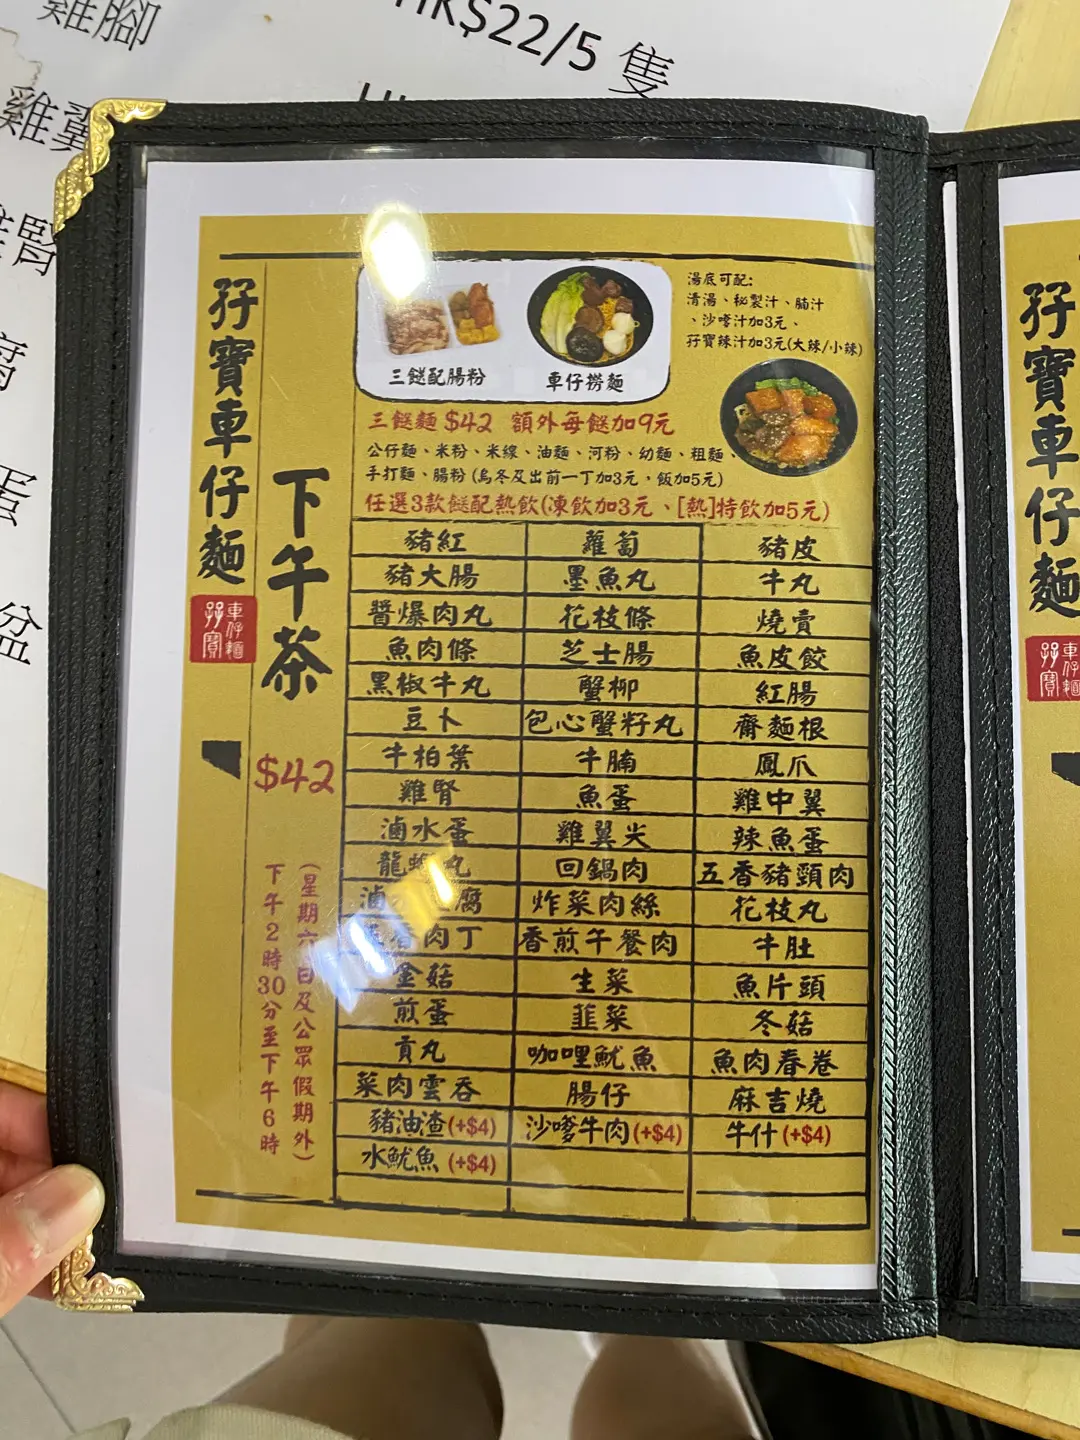 雞腳
HK$22/5 隻
雞翼
腎
蛋
盆
孖寶車仔麵
孖寶
車仔麵
下午茶
$42
(星期六日及公眾假期外)
下午2時30分至下午6時
三餸配腸粉
車仔撈麵
湯底可配:
清湯、秘製汁、腩汁
、沙嗲汁加3元、
孖寶辣汁加3元(大辣/小辣)
三餸麵 $42 額外每餸加9元
公仔麵、米粉、米線、油麵、河粉、幼麵、粗麵、
手打麵、腸粉 (烏冬及出前一丁加3元，飯加5元)
任選3款餸配熱飲(凍飲加3元、[熱]特飲加5元)
豬紅 蘿蔔 豬皮
豬大腸 墨魚丸 牛丸
醬爆肉丸 花枝條 燒賣
魚肉條 芝士腸 魚皮餃
黑椒牛丸 蟹柳 紅腸
豆卜 包心蟹籽丸 齋麵根
牛柏葉 牛腩 鳳爪
雞腎 魚蛋 雞中翼
滷水蛋 雞翼尖 辣魚蛋
龍蝦丸 回鍋肉 五香豬頸肉
滷 腐 炸菜肉絲 花枝丸
香肉丁 香煎午餐肉 牛肚
金菇 生菜 魚片頭
煎蛋 韮菜 冬菇
貢丸 咖哩魷魚 魚肉春卷
菜肉雲吞 腸仔 麻吉燒
豬油渣(+$4) 沙嗲牛肉(+$4) 牛什(+$4)
水魷魚 (+$4)
孖寶車仔麵
孖寶
車仔麵